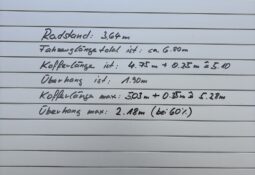 Radstand: 3,64m
Fahrzeuglänge total ist: ca. 6.80m
Kofferlänge ist: 4.75m + 0.35m ≙ 5.10
Überhang ist: 1.90m
Kofferlänge max: 5.03m + 0.35m ≙ 5.28m
Überhang max: 2.18m (bei 60%)